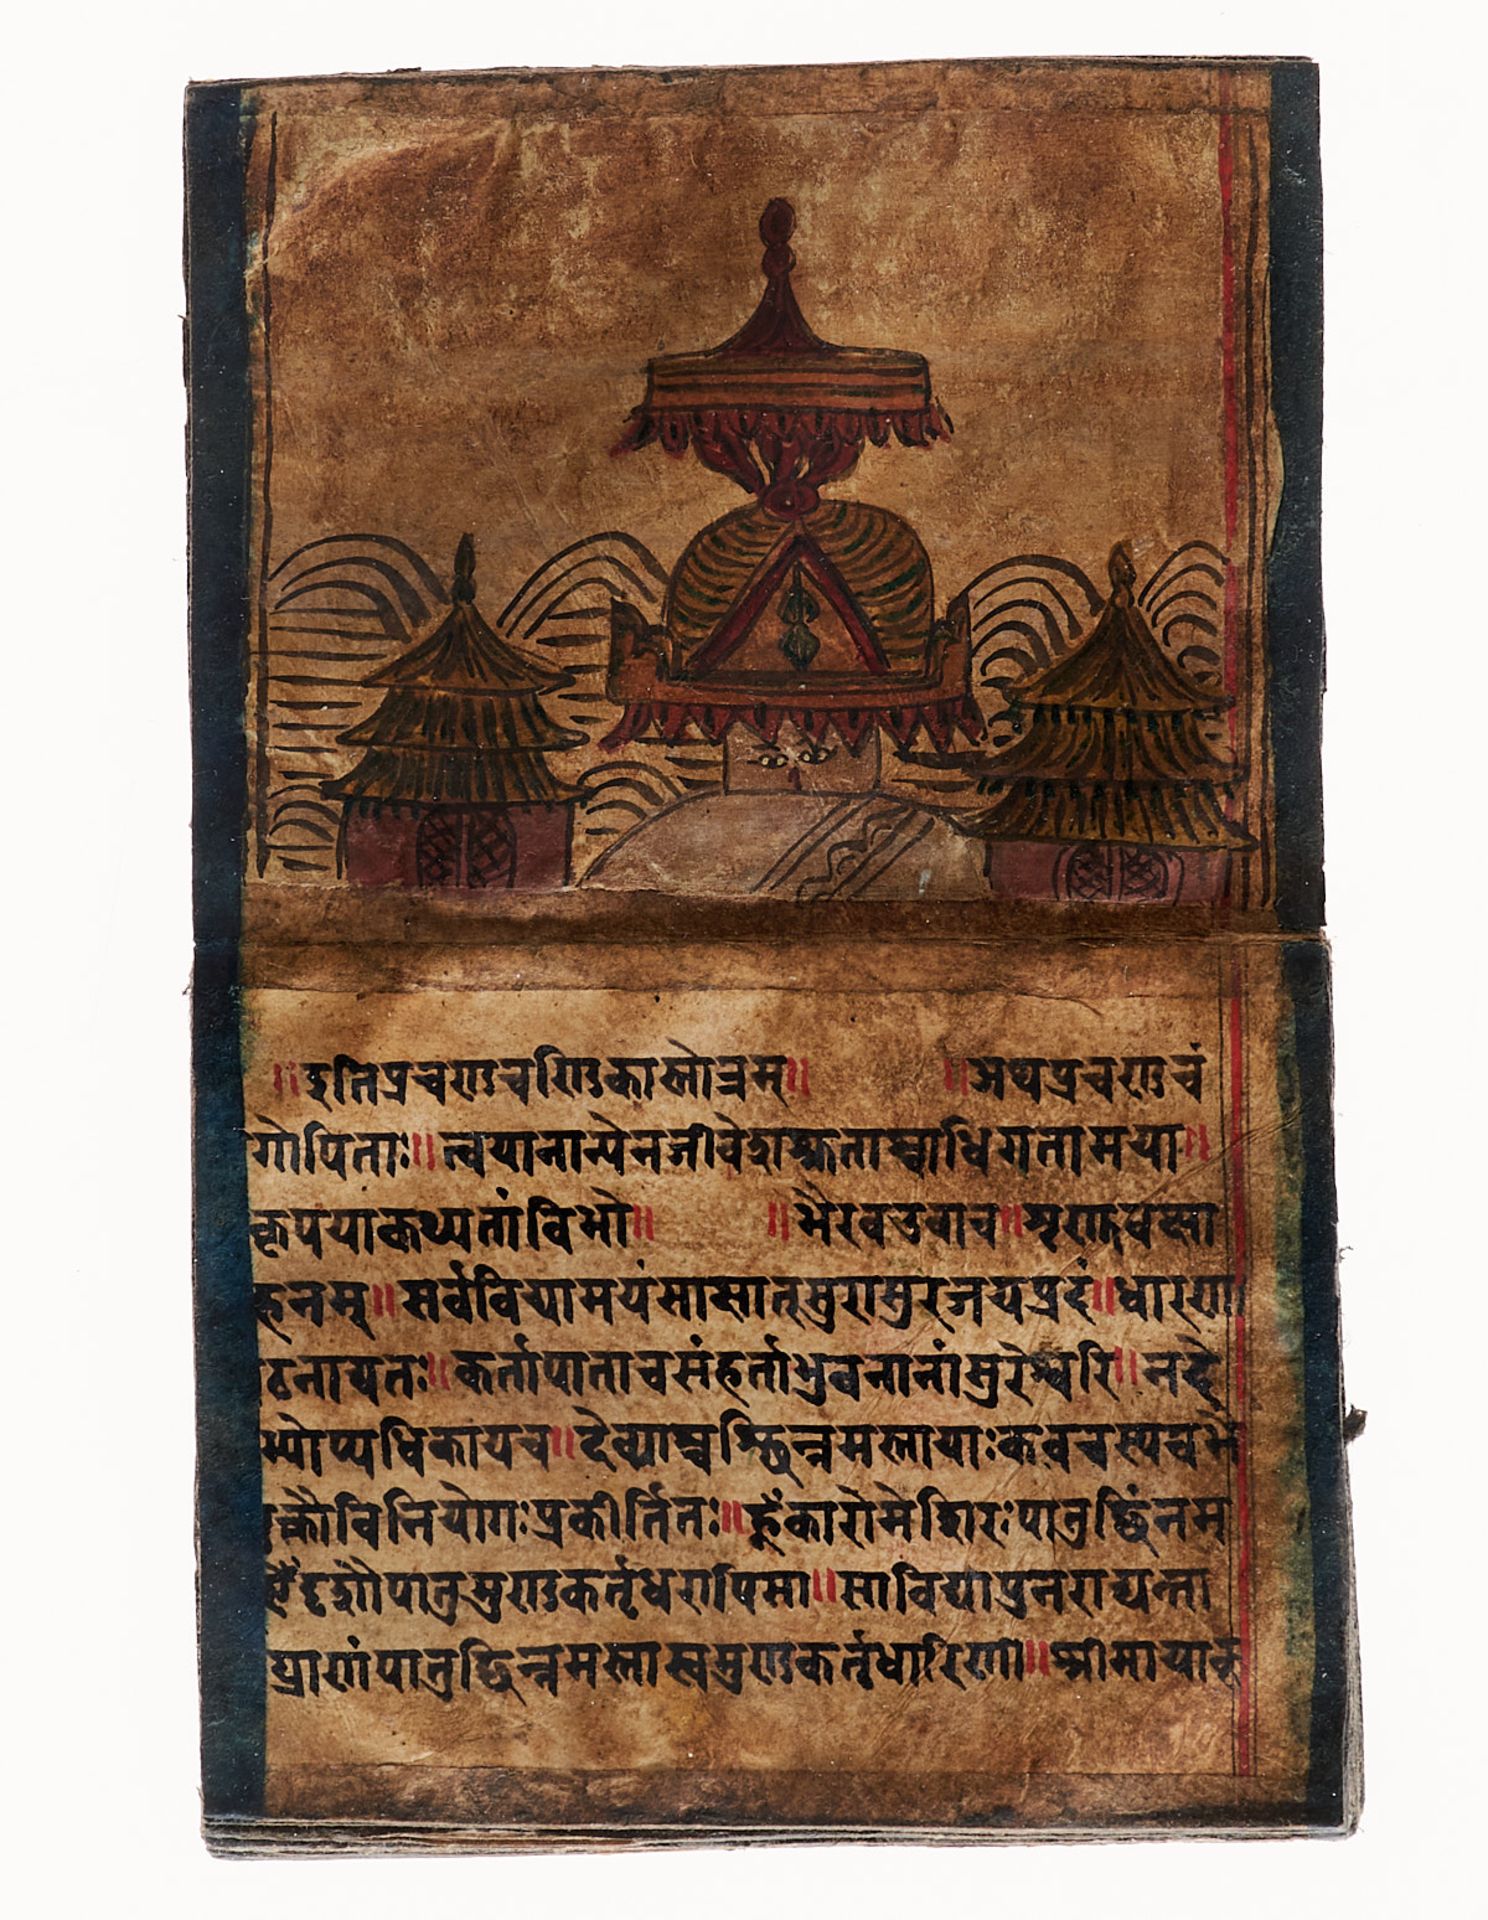 ॥इतिप्रचण्डचण्डिकास्तोत्रम्॥ ॥अथप्रचण्डचं
गोपिताः॥त्वयानाथेनजीवेशश्रुताश्चाधिगतामया॥
कृपयाकथ्यतांविभो॥ ॥भैरवउवाच॥शृणुवक्ष्या
हनम्॥सर्वविद्यामयंसाक्षात्सुरासुरजयप्रदं॥धारणा
ठनाद्यतः॥कर्तापाताचसंहर्ताभुवनानांसुरेश्वरि॥नदे
भ्योप्यधिकायच॥देव्याश्चछिन्नमस्तायाःकवचस्यचभै
मुक्तौविनियोगःप्रकीर्तितः॥हूँकारोमेशिरःपातुछिंनम
दृशौपातुमुण्डकर्तृधरापिमा॥साविद्याप्रनराद्यन्ता
घ्राणंपातुछिन्नमस्तास्वमुण्डकर्तृधारिणी॥श्रीमायाकू